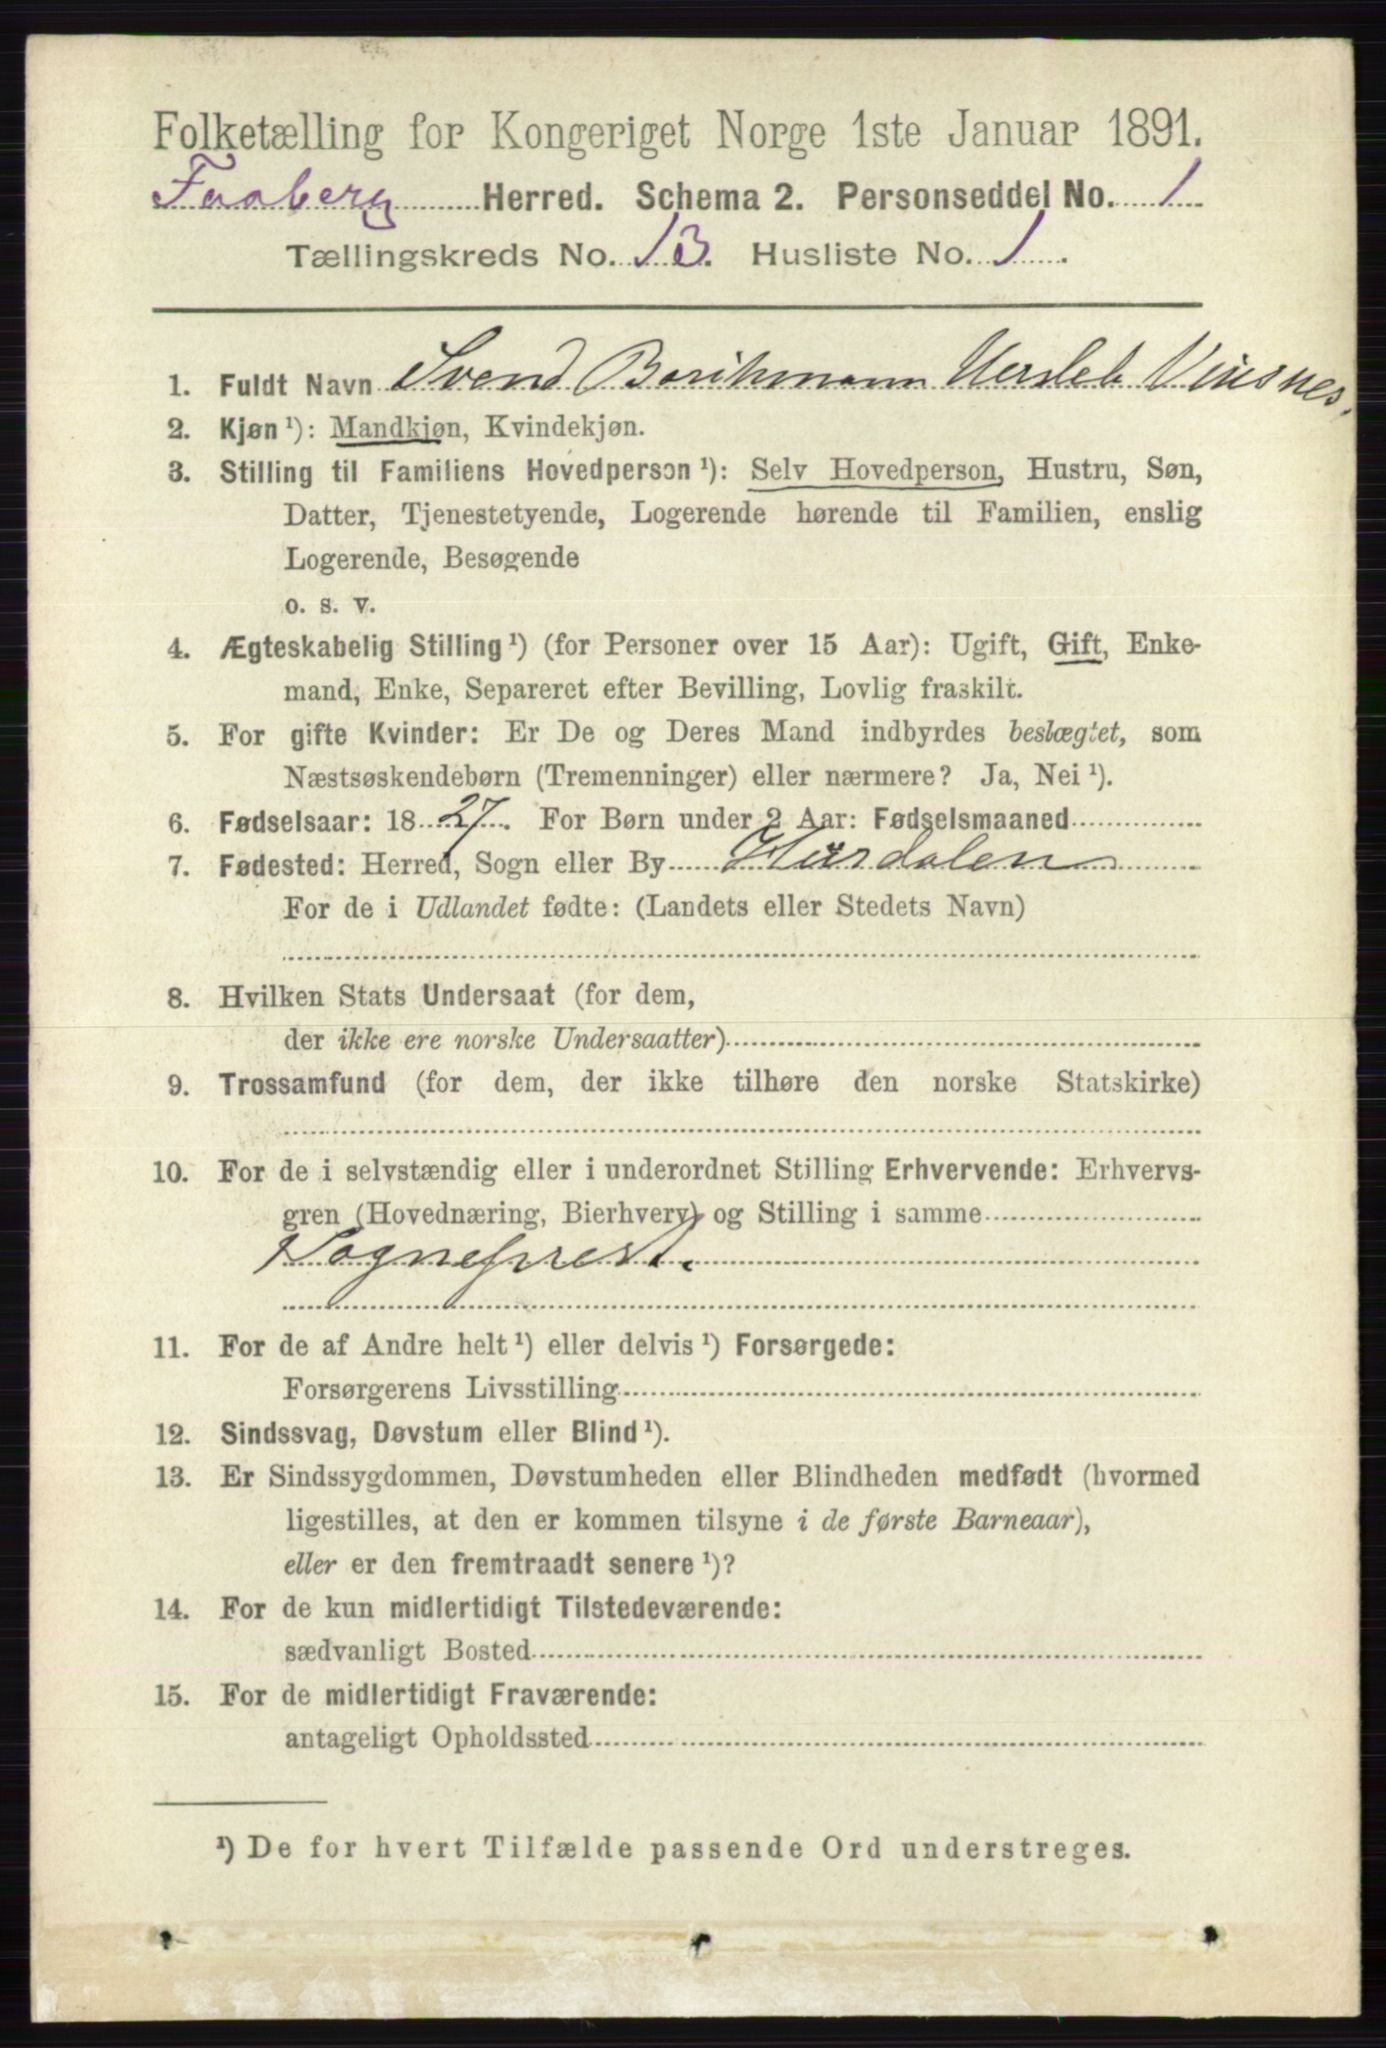 Folketælling for Kongeriget Norge 1ste Januar 1891.
Faaberg Herred. Schema 2. Personseddel No. 1
Tællingskreds No. 13. Husliste No. 1.
1. Fuldt Navn Svend Borchmann Hersleb Vinsnes.
2. Kjøn ¹): Mandkjøn, Kvindekjøn.
3. Stilling til Familiens Hovedperson ¹): Selv Hovedperson, Hustru, Søn,
Datter, Tjenestetyende, Logerende hørende til Familien, enslig
Logerende, Besøgende
o. s. v.
4. Ægteskabelig Stilling ¹) (for Personer over 15 Aar): Ugift, Gift, Enke-
mand, Enke, Separeret efter Bevilling, Lovlig fraskilt.
5. For gifte Kvinder: Er De og Deres Mand indbyrdes beslægtet, som
Næstsøskendebørn (Tremenninger) eller nærmere? Ja, Nei ¹).
6. Fødselsaar: 1827. For Børn under 2 Aar: Fødselsmaaned
7. Fødested: Herred, Sogn eller By Hurdalen
For de i Udlandet fødte: (Landets eller Stedets Navn)
8. Hvilken Stats Undersaat (for dem,
der ikke ere norske Undersaatter)
9. Trossamfund (for dem, der ikke tilhøre den norske Statskirke)
10. For de i selvstændig eller i underordnet Stilling Erhvervende: Erhvervs-
gren (Hovednæring, Bierhverv) og Stilling i samme
Sogneprest.
11. For de af Andre helt ¹) eller delvis ¹) Forsørgede:
Forsørgerens Livsstilling
12. Sindssvag, Døvstum eller Blind ¹).
13. Er Sindssygdommen, Døvstumheden eller Blindheden medfødt (hvormed
ligestilles, at den er kommen tilsyne i de første Barneaar),
eller er den fremtraadt senere ¹)?
14. For de kun midlertidigt Tilstedeværende:
sædvanligt Bosted
15. For de midlertidigt Fraværende:
antageligt Opholdssted
¹) De for hvert Tilfælde passende Ord understreges.